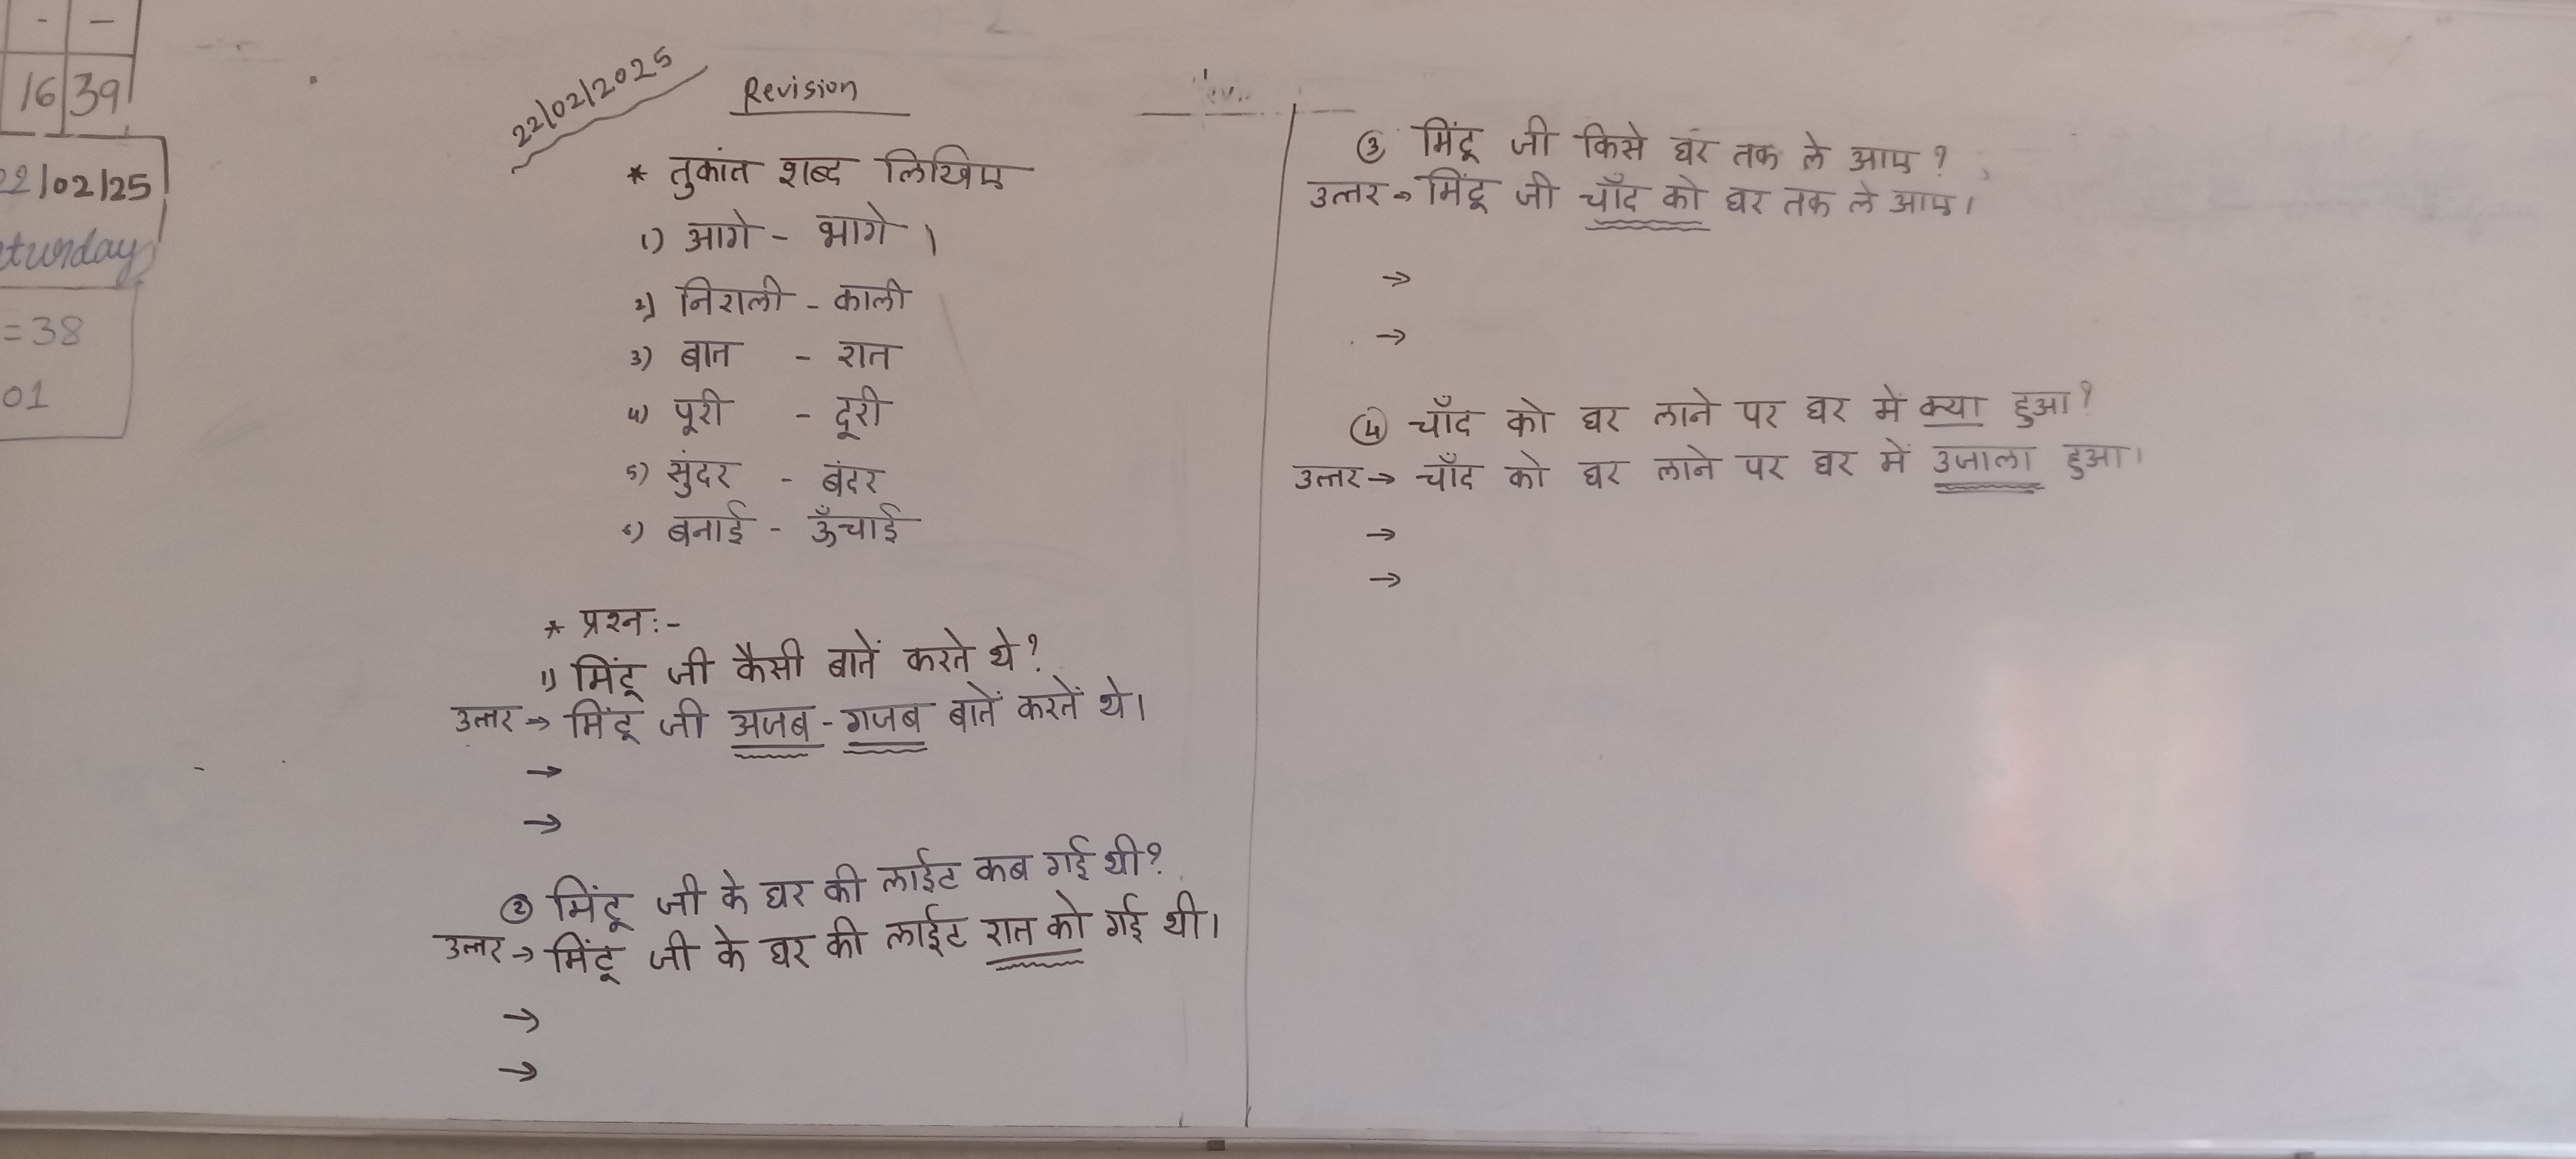 - —
16 39
22/02/25
turday
=38
01
22/02/2025
Revision
* तुकांत शब्द लिखिए
1) आगे - भागे ।
2) निराली - काली
3) बात - रात
4) पूरी - दूरी
5) सुंदर - बंदर
6) बनाई - ऊँचाई
* प्रश्न :-
1) मिंटू जी कैसी बातें करते थे?
उत्तर → मिंटू जी अजब - गजब बातें करतें थे।
→
→
② मिंटू जी के घर की लाईट कब गई थी?
उत्तर → मिंटू जी के घर की लाईट रात को गई थी।
→
→
③ मिंटू जी किसे घर तक ले आए ?
उत्तर → मिंटू जी चाँद को घर तक ले आए।
→
→
④ चाँद को घर लाने पर घर में क्या हुआ?
उत्तर → चाँद को घर लाने पर घर में उजाला हुआ।
→
→